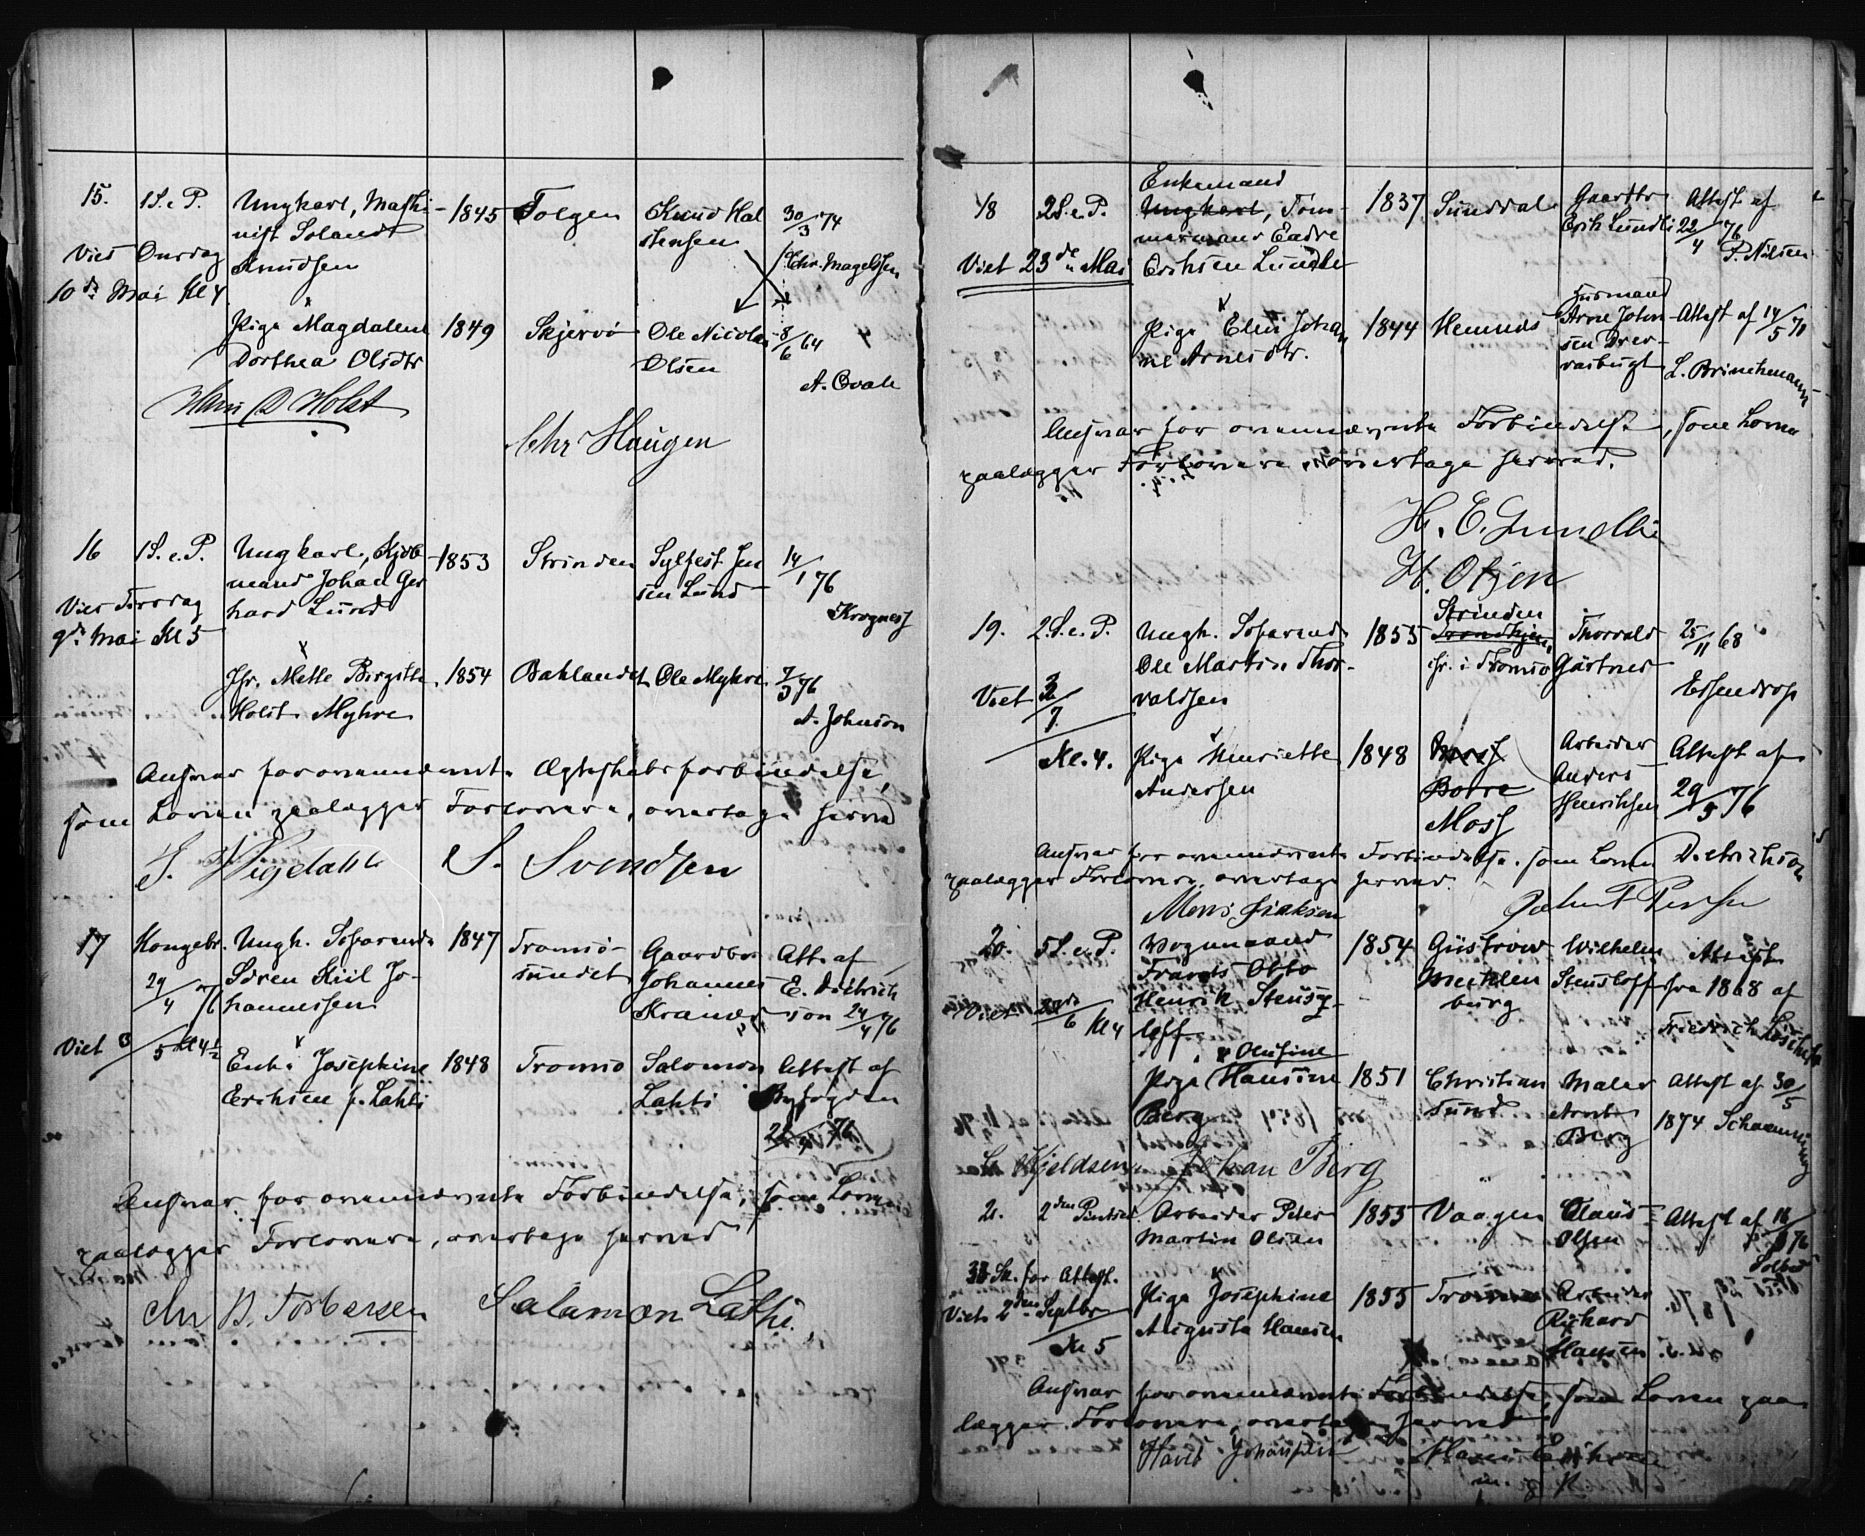 15.
1 S. e. P.
Ungkarl, Maski-
nist Soland
Knudsen
1845
Tolgen
Knud Hal
stensen
30/3 74
Chr. Magelssen
Viet Onsdag
10de Mai Kl 4
Pige Magdalene
Dorthea Olsdtr
1849
Skjervø
Ole Nicolai
Olsen
8/6 64
A. Qvale
Hans D Holst
Chr Haugen
16
1 S. e. P.
Ungkarl,
mand Johan Ger
hard Lund
1853
Strinden
Sylfest Jen
sen Lund
14/1 76
Krogness
Viet Tirsdag
9de Mai Kl 5
Jfr. Mette Birgitte
Holst Myhre
1854
Baklandet
Ole Myhre
7/3 76
A. Johnson
Ansvar for ovennævnte Ægteskabsforbindelse,
som Loven paalægger Forlovere, overtages herved
S. Svendsen
17
Kongebr.
29/4 76
Ungk. Sofarende
Søren Kiil Jo-
hannessen
1847
Tromsø-
sundet
Gaardbr
Johannes
Att. af
E. Dietrich
son 24/4 76
Viet 3/5 Kl 4½
Enke Josephine
Eriksen f. Lahti
1848
Tromsø
Salomon
Lahti
Attest af
Byfogden
Ansvar for ovennævnte Forbindelse, som Loven
paalægger Forlovere, overtages herved
Chr D. Torbersen
Salamon Lathi
18
2 S. e. P.
Enkemand
Ungkarl, Tøm-
mermand Endre
Eriksen Lundli
1837
Sunddal
Gaardbr
Erik Lundli
Attest af
22/4 76
P. Nilsen
Viet 23de Mai
Pige Elen Johan
ne Arnesdtr.
1844
Hemnæs
Husmand
Arne John
sen
Attest af 14/5 71
L. Brinchmann
Ansvar for ovennævnte Forbindelse, som Loven
paalægger Forlovere, overtages herved.
H. E. Lundli
H. Olsen
19.
2 S. e. P.
Ungk. Sofarende
Ole Martin Thor-
valdsen
1855
Strinden
Trondhjem
i Tromsø
Thorvald
Gärtner
25/11 68
Essendrop
Viet 2/7
Kl. 4.
Pige Henriette
Andersen
1848
Moss
Borre
Moss
Arbeider
Anders
Henriksen
Attest af
29/5 76
Dietrichson
Ansvar for ovennævnte Forbindelse, som Loven
paalægger Forlovere overtages herved.
Mons Isaksen
20.
5 S. e. P.
Vognmand
Frants Otto
Henrik Stens-
loff
1854
Güstrow
Mecklen
burg
Wilhelm
Stensloff
Attest
fra 1868 af
Friedrich
Viet
Kl 4
Olufine
Pige Hansine
Berg
1851
Christian
sund
Maler
Berg
Attest af 30/5
1874
Kjeldsen
Johan Berg
21.
2den Pintsed.
Arbeider Peter
Martin Olsen
1853
Vaagen
Claus
Olsen
Attest af
for Attest.
Viet 2den Septbr
Kl 5
Pige Josephine
Augusta Hansen
1855
Tromsø
Arbeider
Richard
Hansen
Ansvar for ovennævnte Forbindelse, som Loven paa-
lægger Forlovere, overtages herved